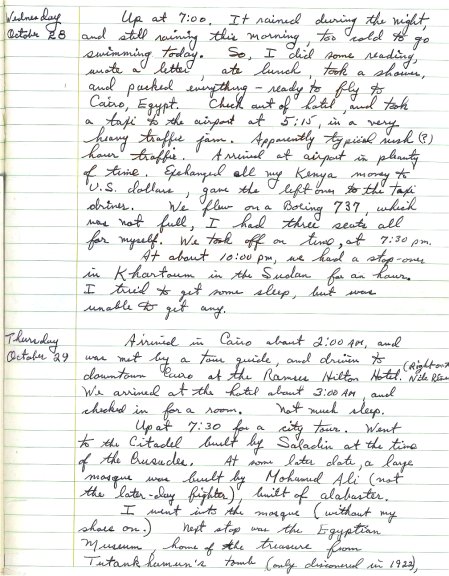 Wednesday
October 28
Up at 7:00. It rained during the night,
and still raining this morning, too cold to go
swimming today. So, I did some reading,
wrote a letter, ate lunch, took a shower,
and packed everything - ready to fly to
Cairo, Egypt. Check out of hotel, and took
a taxi to the airport at 5:15, in a very
heavy traffic jam. Apparently typical rush (?)
hour traffic. Arrived at airport in plenty
of time. Exchanged all my Kenya money to
U.S. dollars, gave the left over to the taxi
driver. We flew on a Boeing 737, which
was not full, I had three seats all
for myself. We took off on time, at 7:30 pm.
At about 10:00 pm, we had a stop-over
in Khartoum in the Sudan for an hour.
I tried to get some sleep, but was
unable to get any.
Thursday
October 29
Arrived in Cairo about 2:00 AM, and
was met by a tour guide, and driven to
downtown Cairo at the Ramses Hilton Hotel. (Right on the Nile River)
We arrived at the hotel about 3:00 AM, and
checked in for a room. Not much sleep.
Up at 7:30 for a city tour. Went
to the Citadel built by Saladin at the time
of the Crusades. At some later date, a large
mosque was built by Mohamud Ali (not
the later-day fighter), built of alabaster.
I went into the mosque (without my
shoes on.) Next stop was the Egyptian
Museum, home of the treasure from
Tutankhamun's tomb (only discovered in 1922),